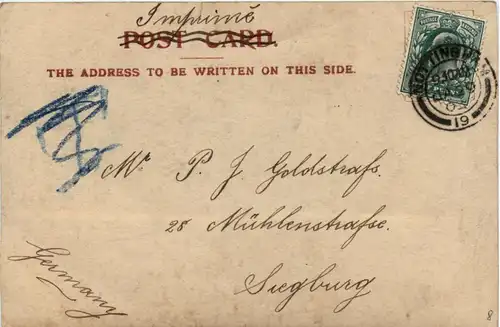 Imprimé
POST CARD.
THE ADDRESS TO BE WRITTEN ON THIS SIDE.
NOTTINGHAM
19
Mr P. J. Goldstrafs.
28 Mühlenstrafse.
Siegburg
Germany
8